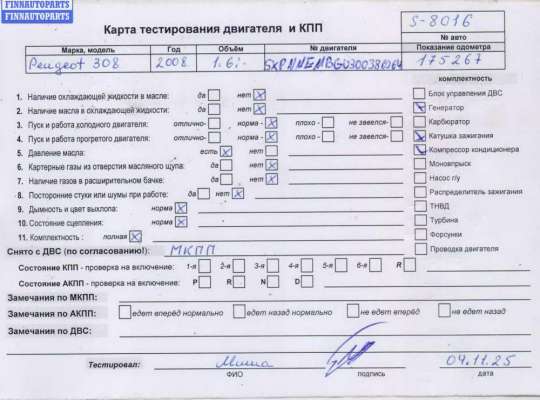 FINNAUTOPARTS
FINNAUTOPARTS
FINNAUTOPARTS
Карта тестирования двигателя и КПП
S-8016
№ авто
Марка, модель Год Объём № двигателя Показание одометра
Peugeot 308 2008 1.6i 175267
комплектность
1. Наличие охлаждающей жидкости в масле: да нет Блок управления ДВС
2. Наличие масла в охлаждающей жидкости: да нет Генератор
3. Пуск и работа холодного двигателя: отлично- норма - плохо - не завелся- Карбюратор
4. Пуск и работа прогретого двигателя: отлично- норма - плохо - не завелся- Катушка зажигания
5. Давление масла: есть нет Компрессор кондиционера
6. Картерные газы из отверстия масляного щупа: да нет Моновпрыск
7. Наличие газов в расширительном бачке: да нет Насос г/у
8. Посторонние стуки или шумы при работе: да нет Распределитель зажигания
9. Дымность и цвет выхлопа: норма ТНВД
10. Состояние сцепления: норма Турбина
11. Комплектность : полная Форсунки
Снято с ДВС (по согласованию!): МКПП Проводка двигателя
Состояние КПП - проверка на включение: 1-я 2-я 3-я 4-я 5-я 6-я R
Состояние АКПП - проверка на включение: P R N D
Замечания по МКПП:
Замечания по АКПП: едет вперёд нормально едет назад нормально не едет вперёд не едет назад
Замечания по ДВС:
Тестировал: Миша 09.11.25
ФИО подпись дата